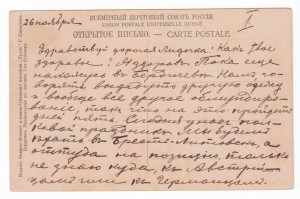 26 ноября
I
ВСЕМІРНЫЙ ПОЧТОВЫЙ СОЮЗЪ РОССІЯ
UNION POSTALE UNIVERSELLE RUSSIE
ОТКРЫТОЕ ПИСЬМО. — CARTE POSTALE.
Здравствуй дорогая Лидочка! Какъ твое
здоровье? Я здоровъ. Пока еще
нахожусь въ Бердичевѣ. Намъ го-
ворятъ, выдадутъ другую одежду
вообще все другое обмундиро-
ваніе, такъ что на это пройдетъ
дней пять. Сегодня у насъ пол-
ковой праздникъ. Мы будемъ
ѣхать въ Брестъ-Литовскъ, а
оттуда на позицію, только
не знаю куда, къ Австрій-
цамъ или къ Германцамъ.